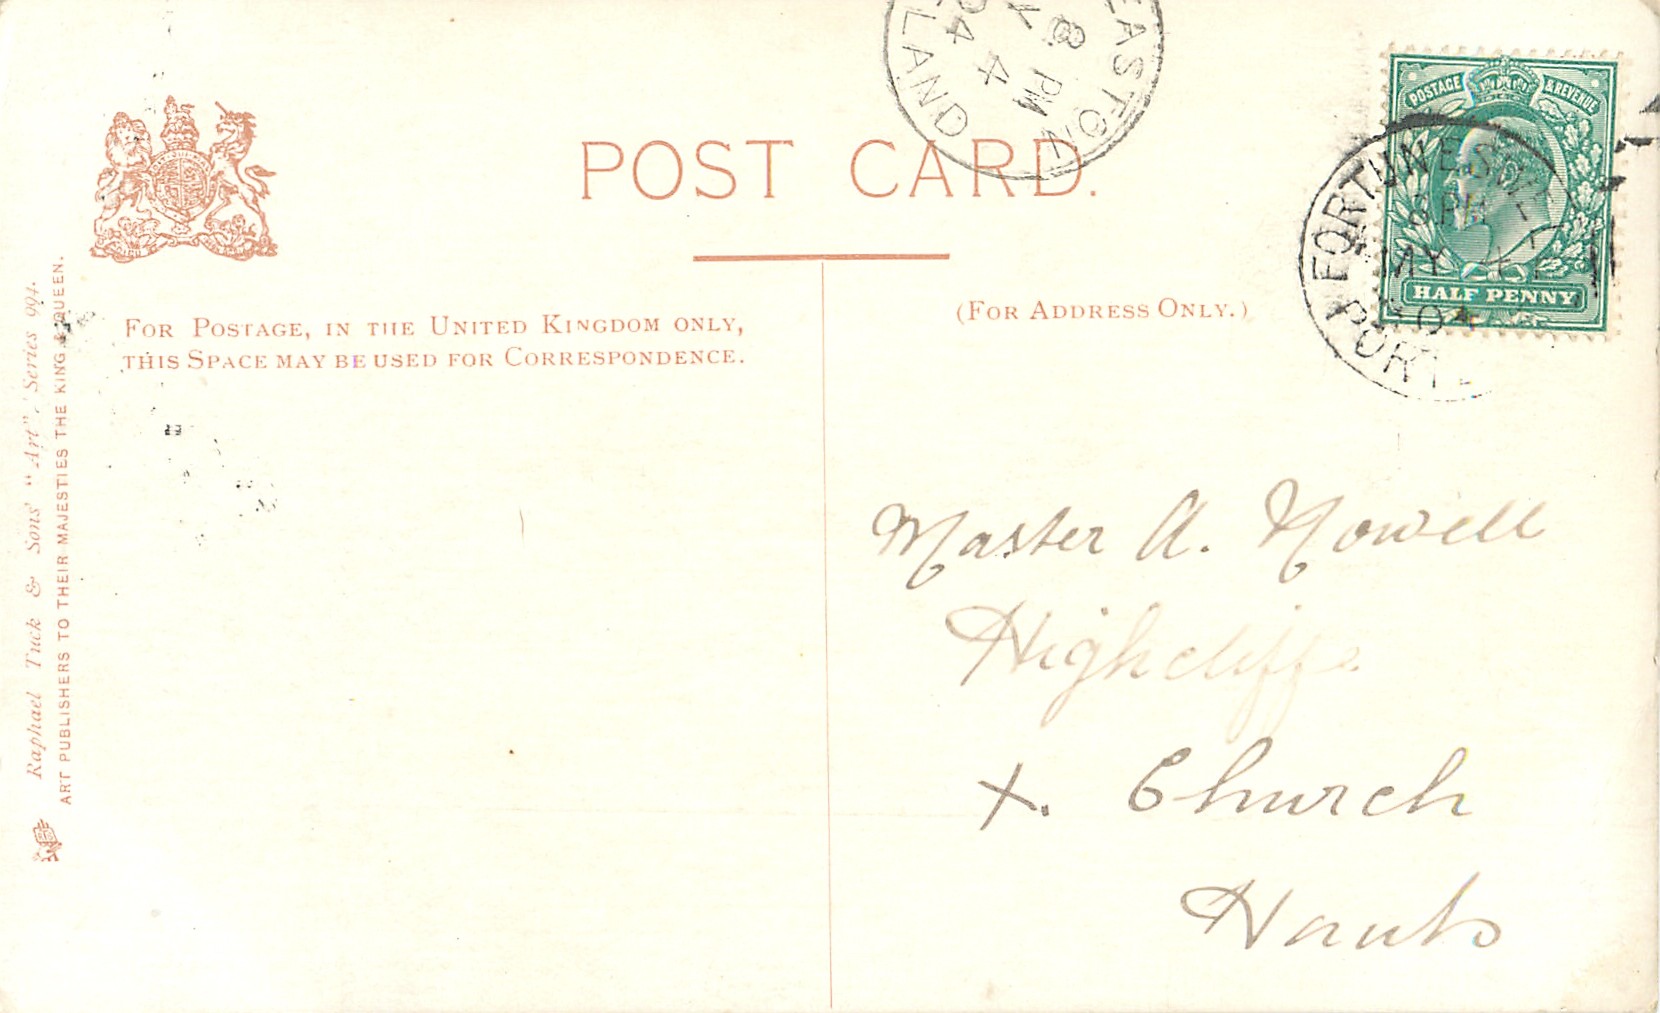 POST CARD.
EASTON
8 PM
4
04
LAND
POSTAGE & REVENUE
HALF PENNY
FORTUNES
8 PM
MY
04
PORT
FOR POSTAGE, IN THE UNITED KINGDOM ONLY,
THIS SPACE MAY BE USED FOR CORRESPONDENCE.
(FOR ADDRESS ONLY.)
Raphael Tuck & Sons' "Art" Series 994.
ART PUBLISHERS TO THEIR MAJESTIES THE KING & QUEEN.
Master A. Nowell
Highcliffe
X. Church
Hants